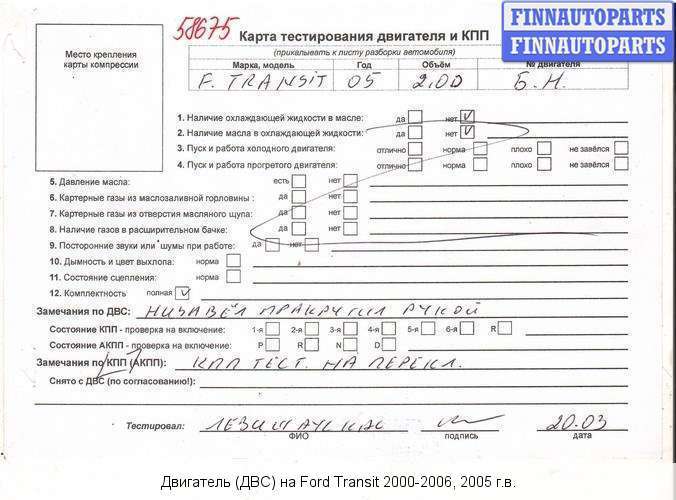 58675 Карта тестирования двигателя и КПП
FINNAUTOPARTS
FINNAUTOPARTS
(прикалывать к листу разборки автомобиля)
Место крепления
карты компрессии
Марка, модель Год Объём № двигателя
F. TRANSIT 05 2,0D Б.Н.
1. Наличие охлаждающей жидкости в масле: да нет
2. Наличие масла в охлаждающей жидкости: да нет
3. Пуск и работа холодного двигателя: отлично норма плохо не завёлся
4. Пуск и работа прогретого двигателя: отлично норма плохо не завёлся
5. Давление масла: есть нет
6. Картерные газы из маслозаливной горловины : да нет
7. Картерные газы из отверстия масляного щупа: да нет
8. Наличие газов в расширительном бачке: да нет
9. Посторонние звуки или шумы при работе: да нет
10. Дымность и цвет выхлопа: норма
11. Состояние сцепления: норма
12. Комплектность полная
Замечания по ДВС: НИЗАВЁЛ ПРАКРУТИЛ РУКОЙ
Состояние КПП - проверка на включение: 1-я 2-я 3-я 4-я 5-я 6-я R
Состояние АКПП - проверка на включение: P R N D
Замечания по КПП (АКПП): КПП ТЕСТ. НА ПЕРЕКЛ.
Снято с ДВС (по согласованию!):
Тестировал: 20.03
ФИО подпись дата
Двигатель (ДВС) на Ford Transit 2000-2006, 2005 г.в.